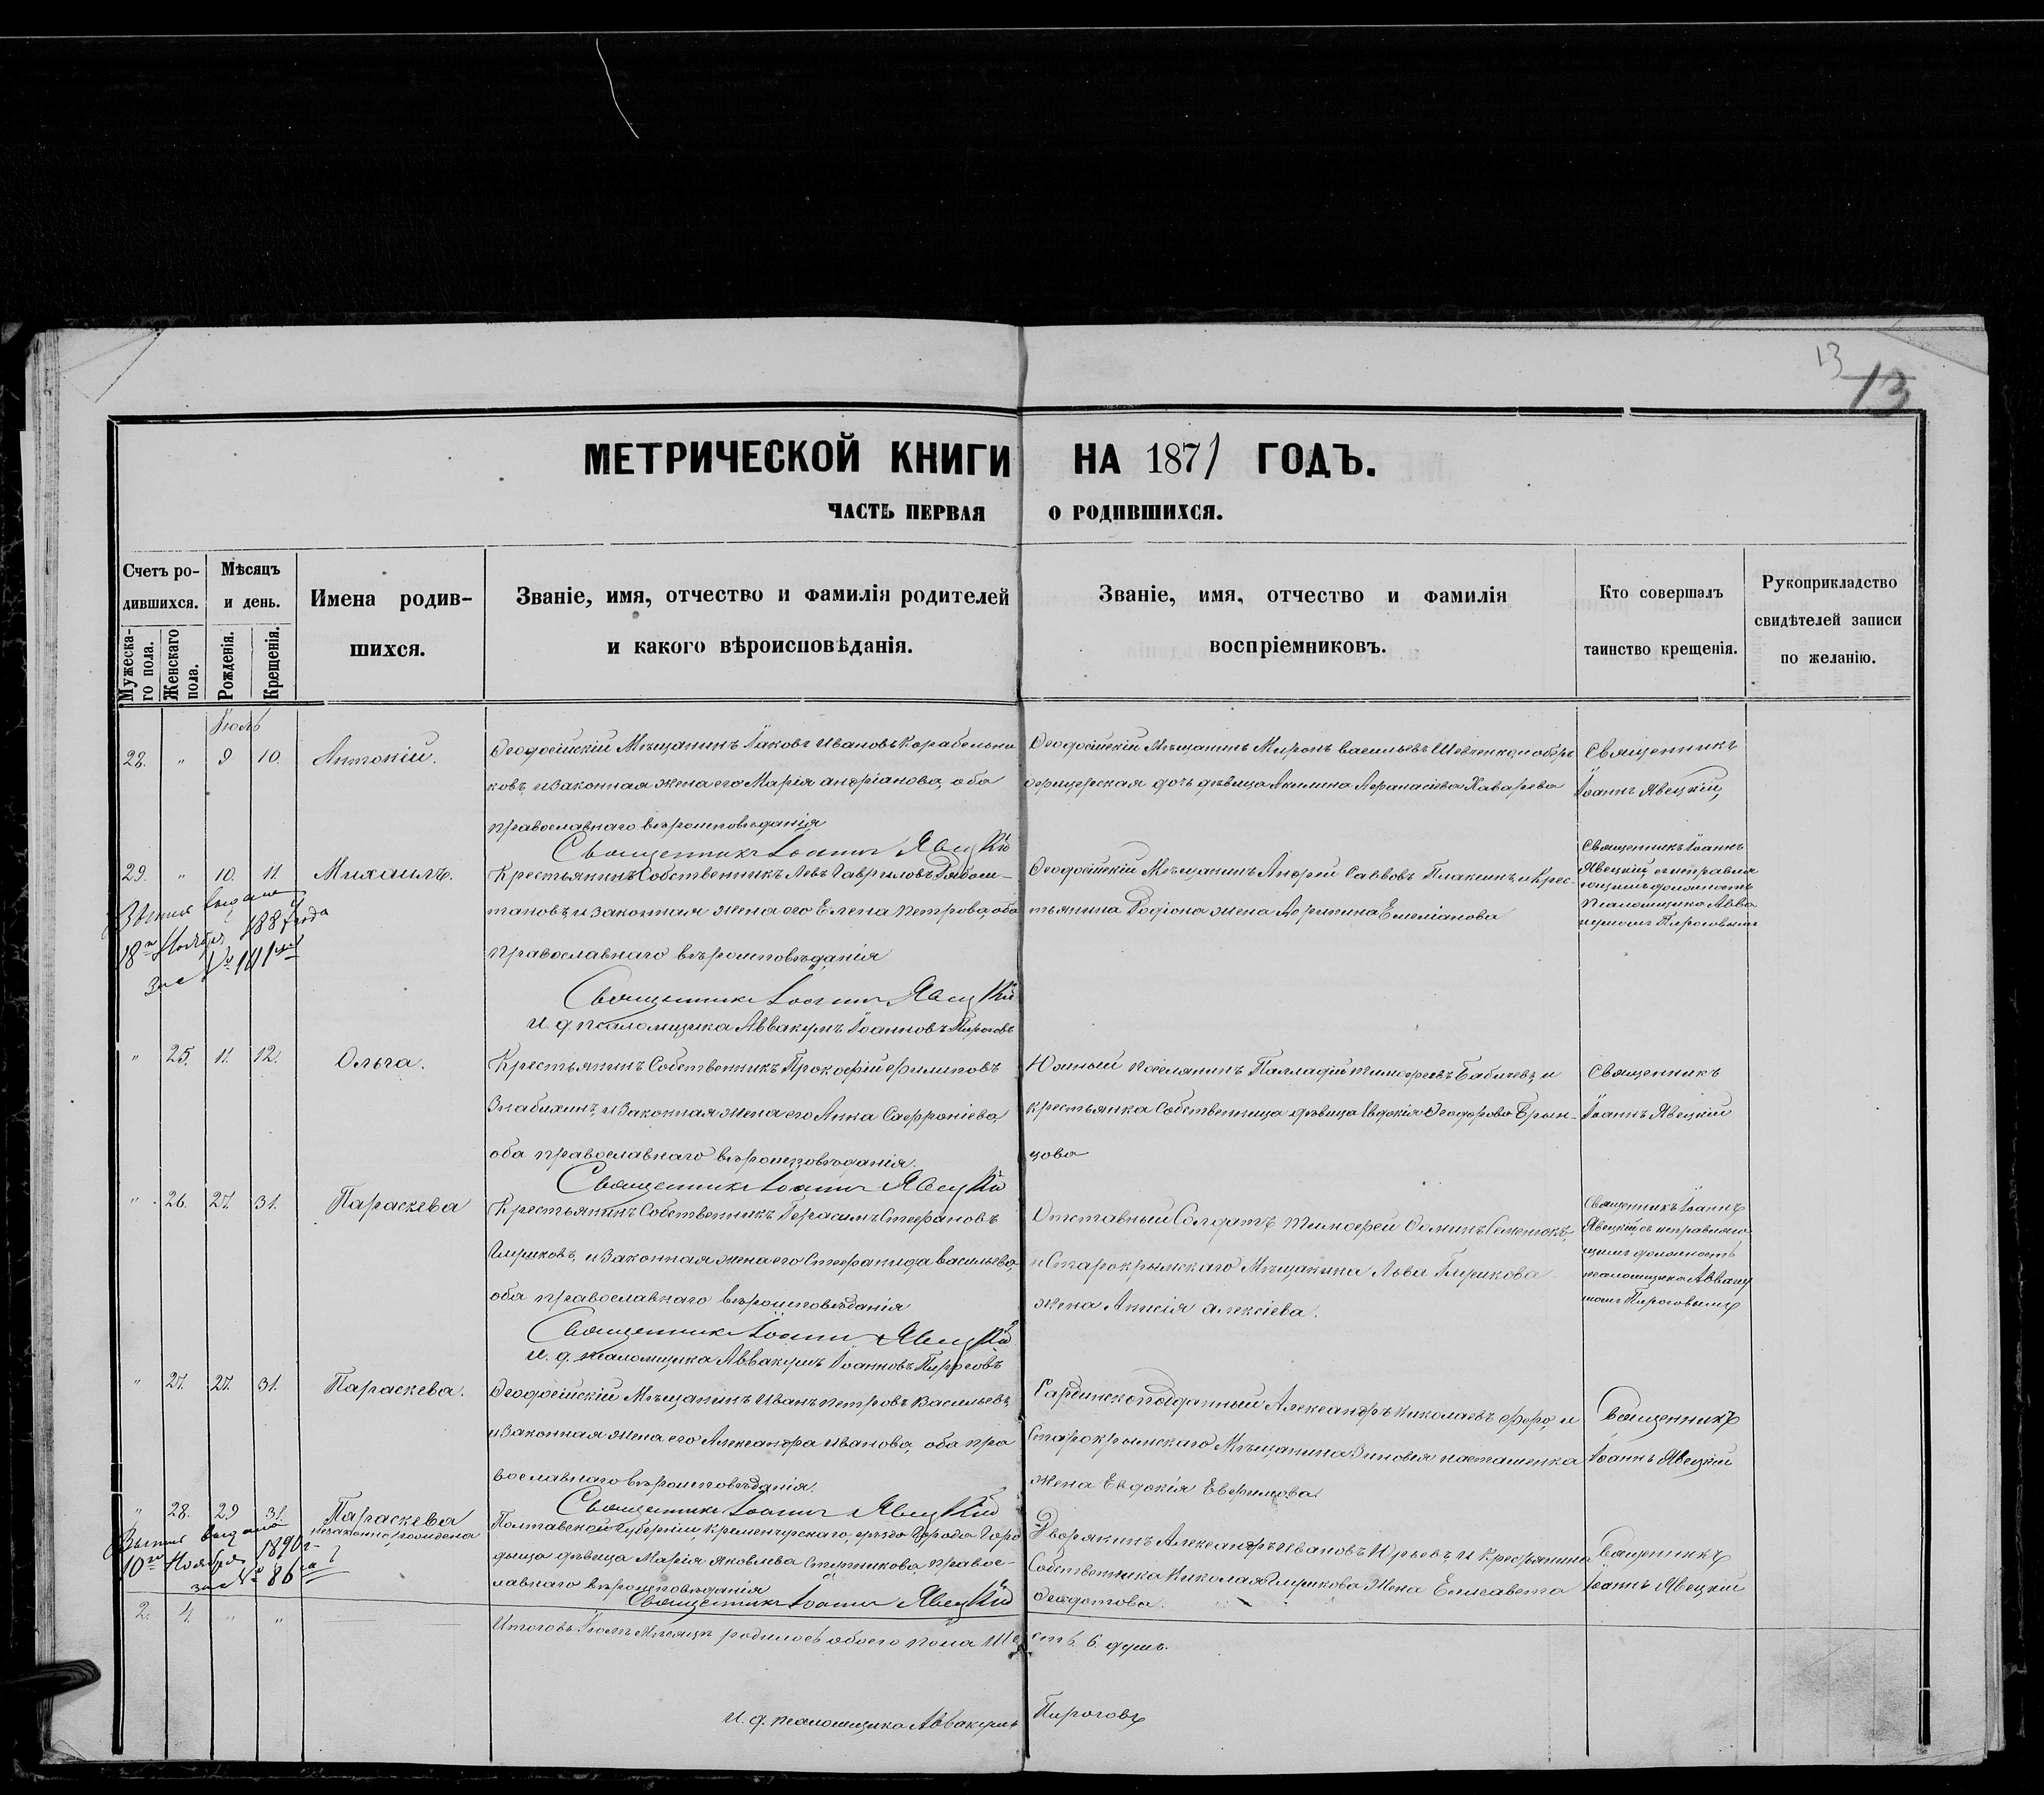 13
13
МЕТРИЧЕСКОЙ КНИГИ НА 1871 ГОДЪ.
ЧАСТЬ ПЕРВАЯ О РОДИВШИХСЯ.
Счетъ ро-
дившихся.
Мужеска-
го пола.
Женскаго
пола.
Мѣсяцъ
и день.
Рожденія.
Крещенія.
Имена родив-
шихся.
Званіе, имя, отчество и фамилія родителей
и какого вѣроисповѣданія.
Званіе, имя, отчество и фамилія
воспріемниковъ.
Кто совершалъ
таинство крещенія.
Рукоприкладство
свидѣтелей записи
по желанію.
Іюль
28. " 9 10. Антоній.
Ѳеодосійскій Мѣщанинъ Іаковъ Ивановъ Корабельни
ковъ, и законная жена его Марія Андріанова, оба
православнаго вѣроисповѣданія
Священникъ Іоаннъ Явецкій
Ѳеодосійскій Мѣщанинъ Миронъ Васильевъ Шевченко, и оберъ
офицерская дочь дѣвица Акилина Афанасіева
Священникъ
Іоаннъ Явецкій
29. " 10. 11. Михаилъ.
выдано
18го Ноября 1887 года
за № 141
Крестьянинъ Собственникъ Левъ Гавриловъ
и законная жена его Елена Петрова, оба
православнаго вѣроисповѣданія
Священникъ Іоаннъ Явецкій
И. д. псаломщика Аввакумъ Іоанновъ Пироговъ
Ѳеодосійскій Мѣщанинъ Андрей Савовъ Плаксинъ, и Крес-
тьянина Родіона жена Емеліанова
Священникъ Іоаннъ
Явецкій, съ исправля
ющимъ должность
Псаломщика Авва
кумомъ Пироговымъ
" 25. 11. 12. Ольга.
Крестьянинъ Собственникъ Прокофій Филиповъ
и законная жена его Анна Сафроніева,
оба православнаго вѣроисповѣданія.
Священникъ Іоаннъ Явецкій
Южный поселянинъ Палладій Тимофеевъ Бабичевъ, и
крестьянка Собственница дѣвица Евдокія Ѳеодорова Брын-
цова
Священникъ
Іоаннъ Явецкій
" 26. 27. 31. Параскева
Крестьянинъ Собственникъ Герасимъ Стефановъ
и законная жена его Стефанида Васильева,
оба православнаго вѣроисповѣданія
Священникъ Іоаннъ Явецкій
И. д. псаломщика Аввакумъ Іоанновъ Пироговъ
Отставный Солдатъ Тимофей Семенюкъ,
и Старокрымскаго Мѣщанина Льва
жена Анисія Алексіева.
Священникъ Іоаннъ
Явецкій, съ исправляю
щимъ должность
псаломщика Авваку
момъ Пироговымъ
" 27. 27. 31. Параскева.
Ѳеодосійскій Мѣщанинъ Иванъ Петровъ Васильевъ,
и законная жена его Александра Иванова, оба пра
вославнаго вѣроисповѣданія.
Священникъ Іоаннъ Явецкій
Сардинскоподданный Александръ Николаевъ Феро, и
Старокрымскаго Мѣщанина Зиновія
жена Евдокія Евфимова
Священникъ
Іоаннъ Явецкій
" 28. 29 31. Параскева
незаконно рождена
выдано
10го Ноября 1890 г.
за № 86
Полтавской Губерніи Кременчугскаго уѣзда Города Горо
дища дѣвица Марія Яковлева Ступникова, правос-
лавнаго вѣроисповѣданія
Священникъ Іоаннъ Явецкій
Дворянинъ Александръ Ивановъ Юрьевъ, и Крестьянина
Собственника Николая жена Елисавета
Ѳеодотова.
Священникъ
Іоаннъ Явецкій
2. 4. " "
Итого въ Іюлѣ Мѣсяцѣ родилось обоего пола Шесть 6. душъ.
И. д. псаломщика Аввакумъ Пироговъ